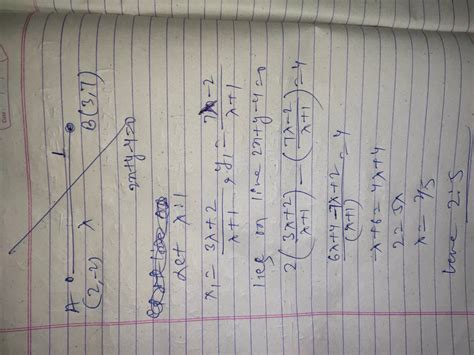 A 1
(2,-2) λ B(3,7)
2x+y-4=0
Let λ:1
x₁ = (3λ+2)/(λ+1) , y₁ = (7λ-2)/(λ+1)
lies on line 2x+y-4=0
2((3λ+2)/(λ+1)) - ((7λ-2)/(λ+1)) = 4
(6λ+4-7λ+2)/(λ+1) = 4
-λ+6=4λ+4
2=5λ
λ=2/5
2:5